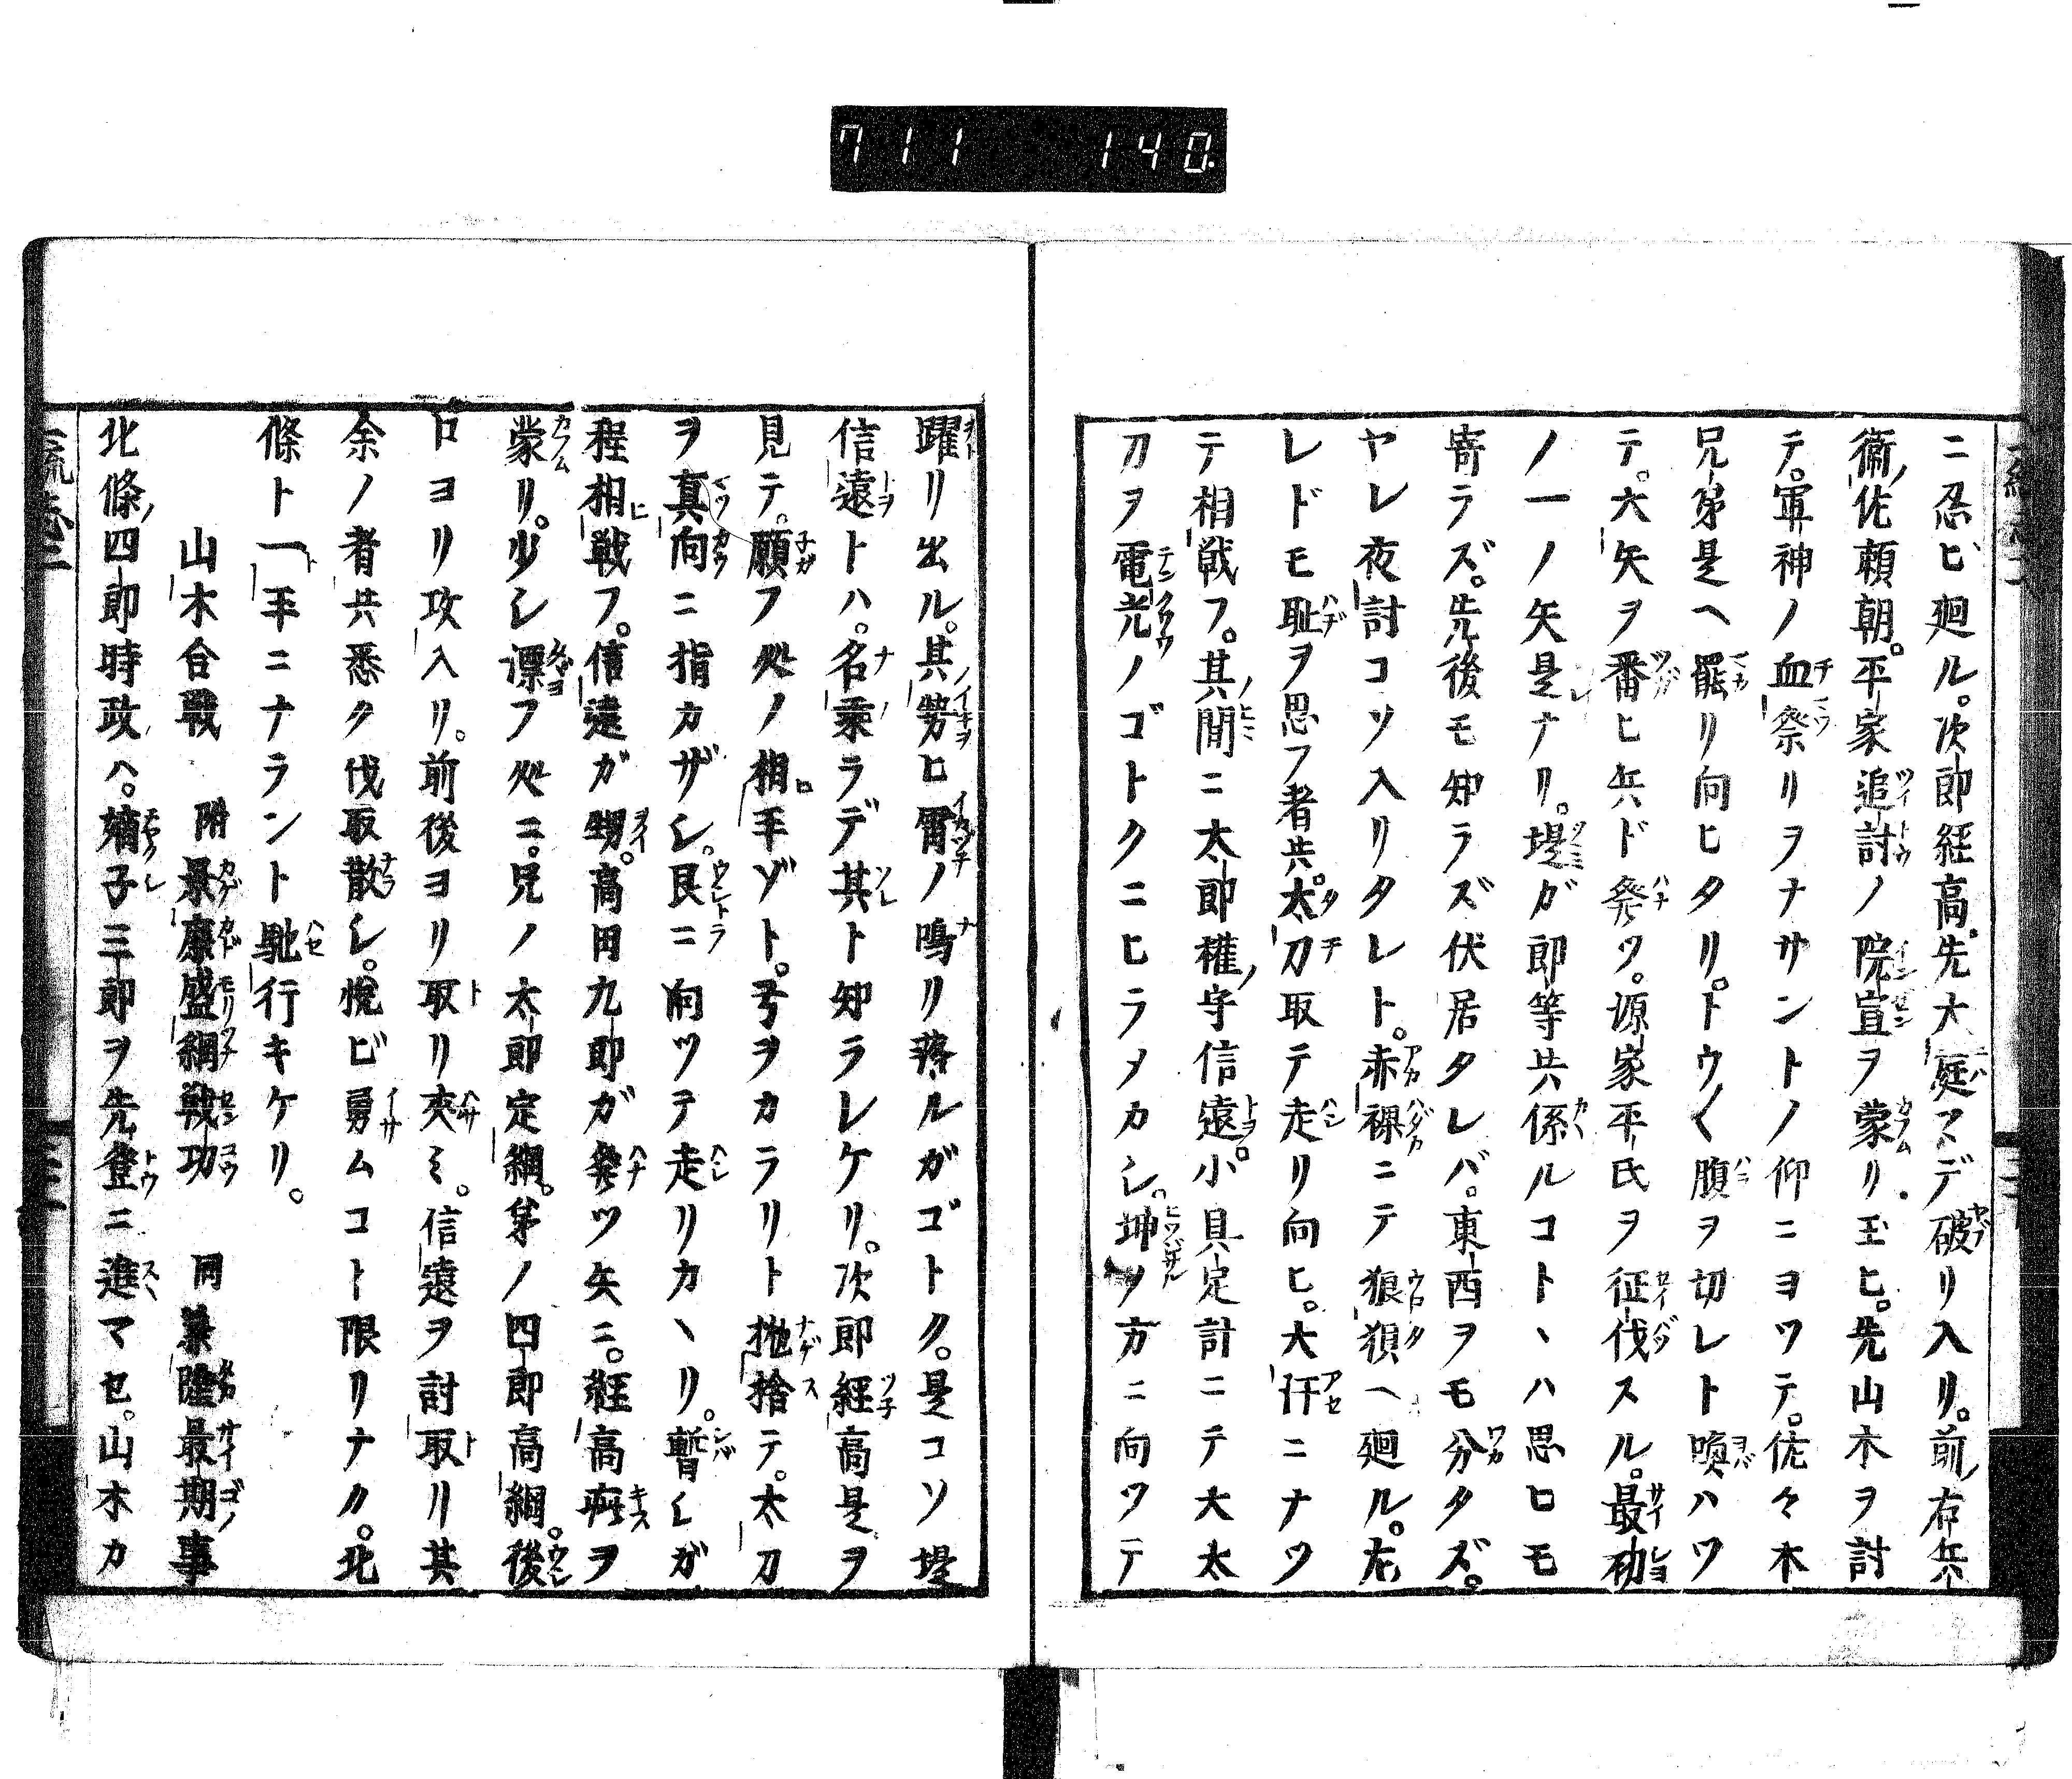 711 140
ニ忍ビ廻ル。次郎経高。先大庭マデ破リ入リ。前右兵
衛佐頼朝。平家追討ノ院宣ヲ蒙リ玉ヒ。先山木ヲ討
テ。軍神ノ血祭リヲナサントノ仰ニヨツテ。佐々木
兄弟是ヘ罷リ向ヒタリ。トウ〱腹ヲ切レト喚ハツ
テ。大矢ヲ番ヒ兵ド発ツ。源家平氏ヲ征伐スル。最初
ノ一ノ矢是ナリ。堤ガ郎等共係ルコト、ハ思ヒモ
寄ラズ。先後モ知ラズ伏居タレバ。東西ヲモ分タズ。
ヤレ夜討コソ入リタレト。赤裸ニテ狼狽ヘ廻ル。左
レドモ耻ヲ思フ者共。太刀取テ走リ向ヒ。大汗ニナツ
テ相戦フ。其間ニ太郎権守信遠。小具足計ニテ大太
刀ヲ電光ノゴトクニヒラメカシ。坤ノ方ニ向ツテ
躍リ出ル。其勢ヒ雷ノ鳴リ落ルガゴトク。是コソ堤
信遠トハ。名乗ラデ其ト知ラレケリ。次郎経高是ヲ
見テ。願フ処ノ相手ゾト。弓ヲカラリト抛捨テ。太刀
ヲ真向ニ指カザシ。艮ニ向ツテ走リカヽリ。暫シガ
程相戦フ。信遠ガ甥。高田九郎ガ発ツ矢ニ。経高疵ヲ
蒙リ。少シ漂フ処ニ。兄ノ太郎定綱。弟ノ四郎高綱。後
ロヨリ攻入リ。前後ヨリ取リ夾ミ。信遠ヲ討取リ其
余ノ者共悉ク伐取散シ。悦ビ勇ムコト限リナク。北
條ト一手ニナラント馳行キケリ。
山木合戦 附景廉盛綱戦功 同兼隆最期事
北條四郎時政ハ。嫡子三郎ヲ先登ニ進マセ。山木カ